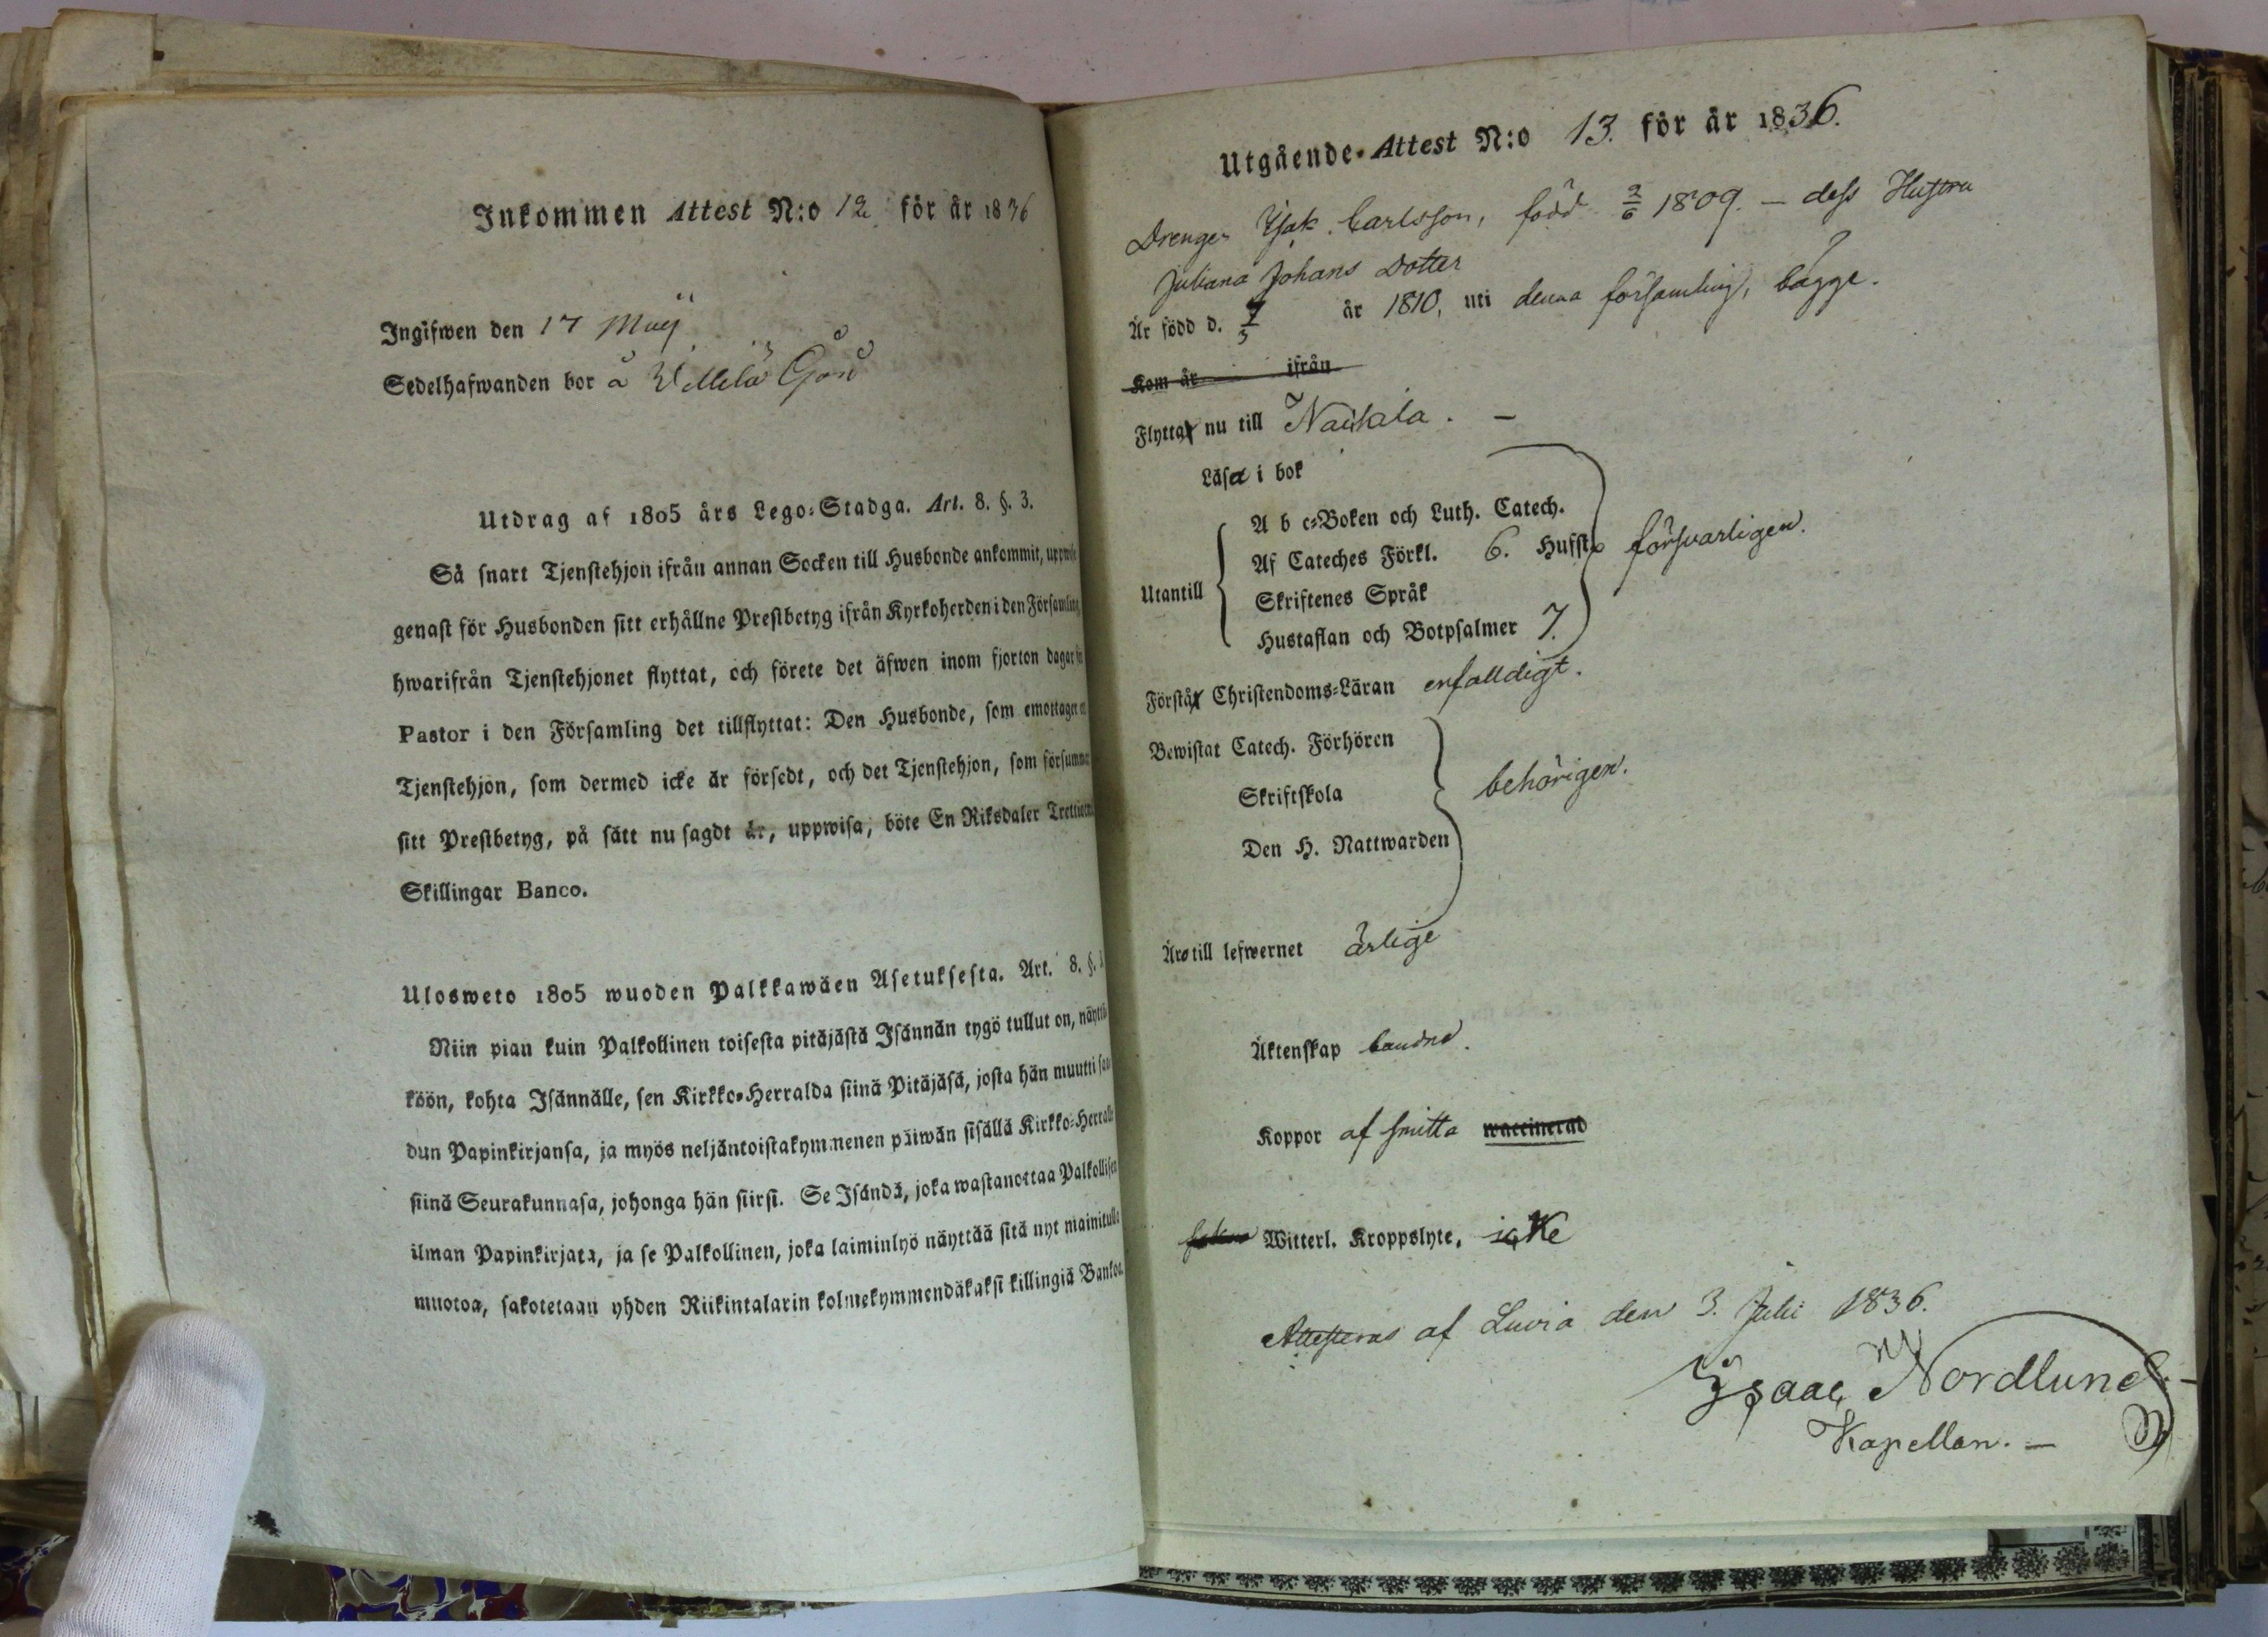 Inkommen Attest N:o 12 för år 1836
Ingifwen den 17 Maij
Sedelhafwanden bor å Gård
Utdrag af 1805 års Lego-Stadga. Art. 8. §. 3.
Så snart Tjenstehjon ifrån annan Socken till Husbonde ankommit, uppwise
genast för Husbonden sitt erhållne Prestbetyg ifrån Kyrkoherden i den Församling
hwarifrån Tjenstehjonet flyttat, och förete det äfwen inom fjorton dagar för
Pastor i den Församling det tillflyttat: Den Husbonde, som emottager et
Tjenstehjon, som dermed icke är försedt, och det Tjenstehjon, som försummar
sitt Prestbetyg, på sätt nu sagdt är, uppwisa, böte En Riksdaler
Skillingar Banco.
Ulosweto 1805 wuoden Palkkawäen Asetuksesta. Art. 8. §. 3
Niin pian kuin Palkollinen toisesta pitäjästä Isännän tygö tullut on, näyttä
köön, kohta Isännälle, sen Kirkko-Herralda siinä Pitäjäsä, josta hän muutti saa
dun Papinkirjansa, ja myös neljäntoistakymmenen päiwän sisällä Kirkko-Herralle
siinä Seurakunnasa, johonga hän siirsi. Se Isändä, joka wastanottaa Palkollisen
ilman Papinkirjata, ja se Palkollinen, joka laiminlyö näyttää sitä nyt mainitulla
muotoa, sakotetaan yhden Riikintalarin kolmekymmendäkaksi killingiä Bankoa.
Utgående-Attest N:o 13. för år 1836.
Drengen Isak Carlsson, född 2/6 1809. – dess Hustru
Juliana Johans Dotter
Är född d. år 1810, uti denna församling, bägge.
Kom år ifrån
Flytta nu till Nackila. –
Läsa i bok
A b c-Boken och Luth. Catech.
Af Cateches Förkl. 6. Hufst. försvarligen.
Utantill
Skriftenes Språk
Hustaflan och Botpsalmer 7.
Förstå Christendoms-Läran enfalldigt.
Bewistat Catech. Förhören
Skriftskola behörigen.
Den H. Nattwarden
Äro till lefwernet ärlige
Äktenskap bundne.
Koppor af smitta waccinerad
Witterl. Kroppslyte, icke
Attesteras af Luvia den 3. Julii 1836.
Isaac Nordlund. –
Kapellan. –